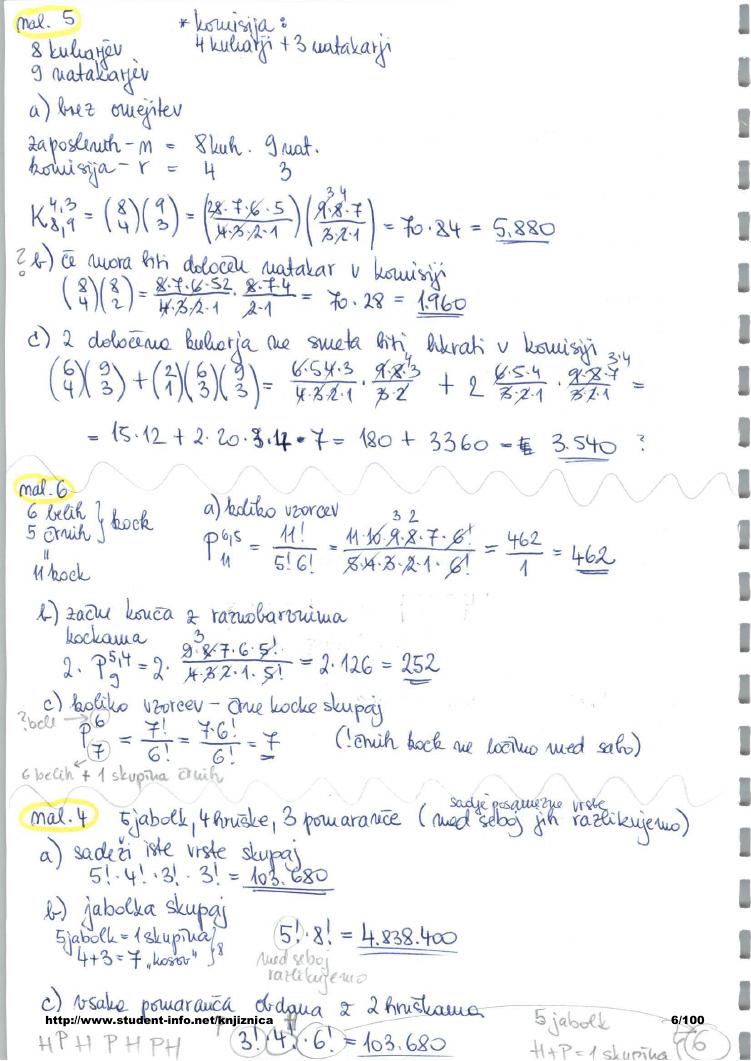 nal. 5
* komisija :
8 kuharjev
4 kuharji + 3 natakarji
9 natakarjev
a) brez omejitev
zaposlenih - n = 8 kuh. 9 nat.
komisija - r = 4 3
K 4,3 8,9 = (8 4)(9 3) = (28·7·6·5 / 4·3·2·1)(9·8·7 / 3·2·1) 3 4 = 70·84 = 5.880
? b) če mora biti določen natakar v komisiji
(8 4)(8 2) = 8·7·6·52 / 4·3·2·1 · 8·7·4 / 2·1 = 70·28 = 1.960
c) 2 določena kuharja ne smeta biti hkrati v komisiji
(6 4)(9 3) + (2 1)(6 3)(9 3) = 6·54·3 / 4·3·2·1 · 9·8·3 / 3·2 + 2 6·5·4 / 3·2·1 · 9·8·7 / 3·2·1 =
= 15·12 + 2·20·3·4·7 = 180 + 3360 = 3.540 ?
nal. 6
6 belih
5 črnih } kock
"
11 kock
a) koliko vzorcev
P 6,5 11 = 11! / 5! 6! = 11·10·9·8·7·6! / 5·4·3·2·1·6! = 462 / 1 = 462
b) začne konča z raznobarvnima
kockama
2· P 5,4 9 = 2· 9·8·7·6·5! / 4·3·2·1·5! = 2·126 = 252
c) koliko vzorcev - črne kocke skupaj
? bele → P 6 7 = 7! / 6! = 7·6! / 6! = 7 (! črnih kock ne ločimo med sabo)
6 belih + 1 skupina črnih
nal. 4 5 jabolk, 4 hruške, 3 pomaranče (sadje posamezne vrste med seboj jih razlikujemo)
a) sadeži iste vrste skupaj
5! · 4! · 3! · 3! = 103.680
b) jabolka skupaj
5 jabolk = 1 skupina
4+3 = 7 "kosov" } 8
5! · 8! = 4.838.400
med seboj
razlikujemo
c) vsaka pomaranča obdana z 2 hruškama
http://www.student-info.net/knjiznica
6/100
H P H P H P H
3! 4! · 6! = 103.680
5 jabolk
H+P = 1 skupina
6